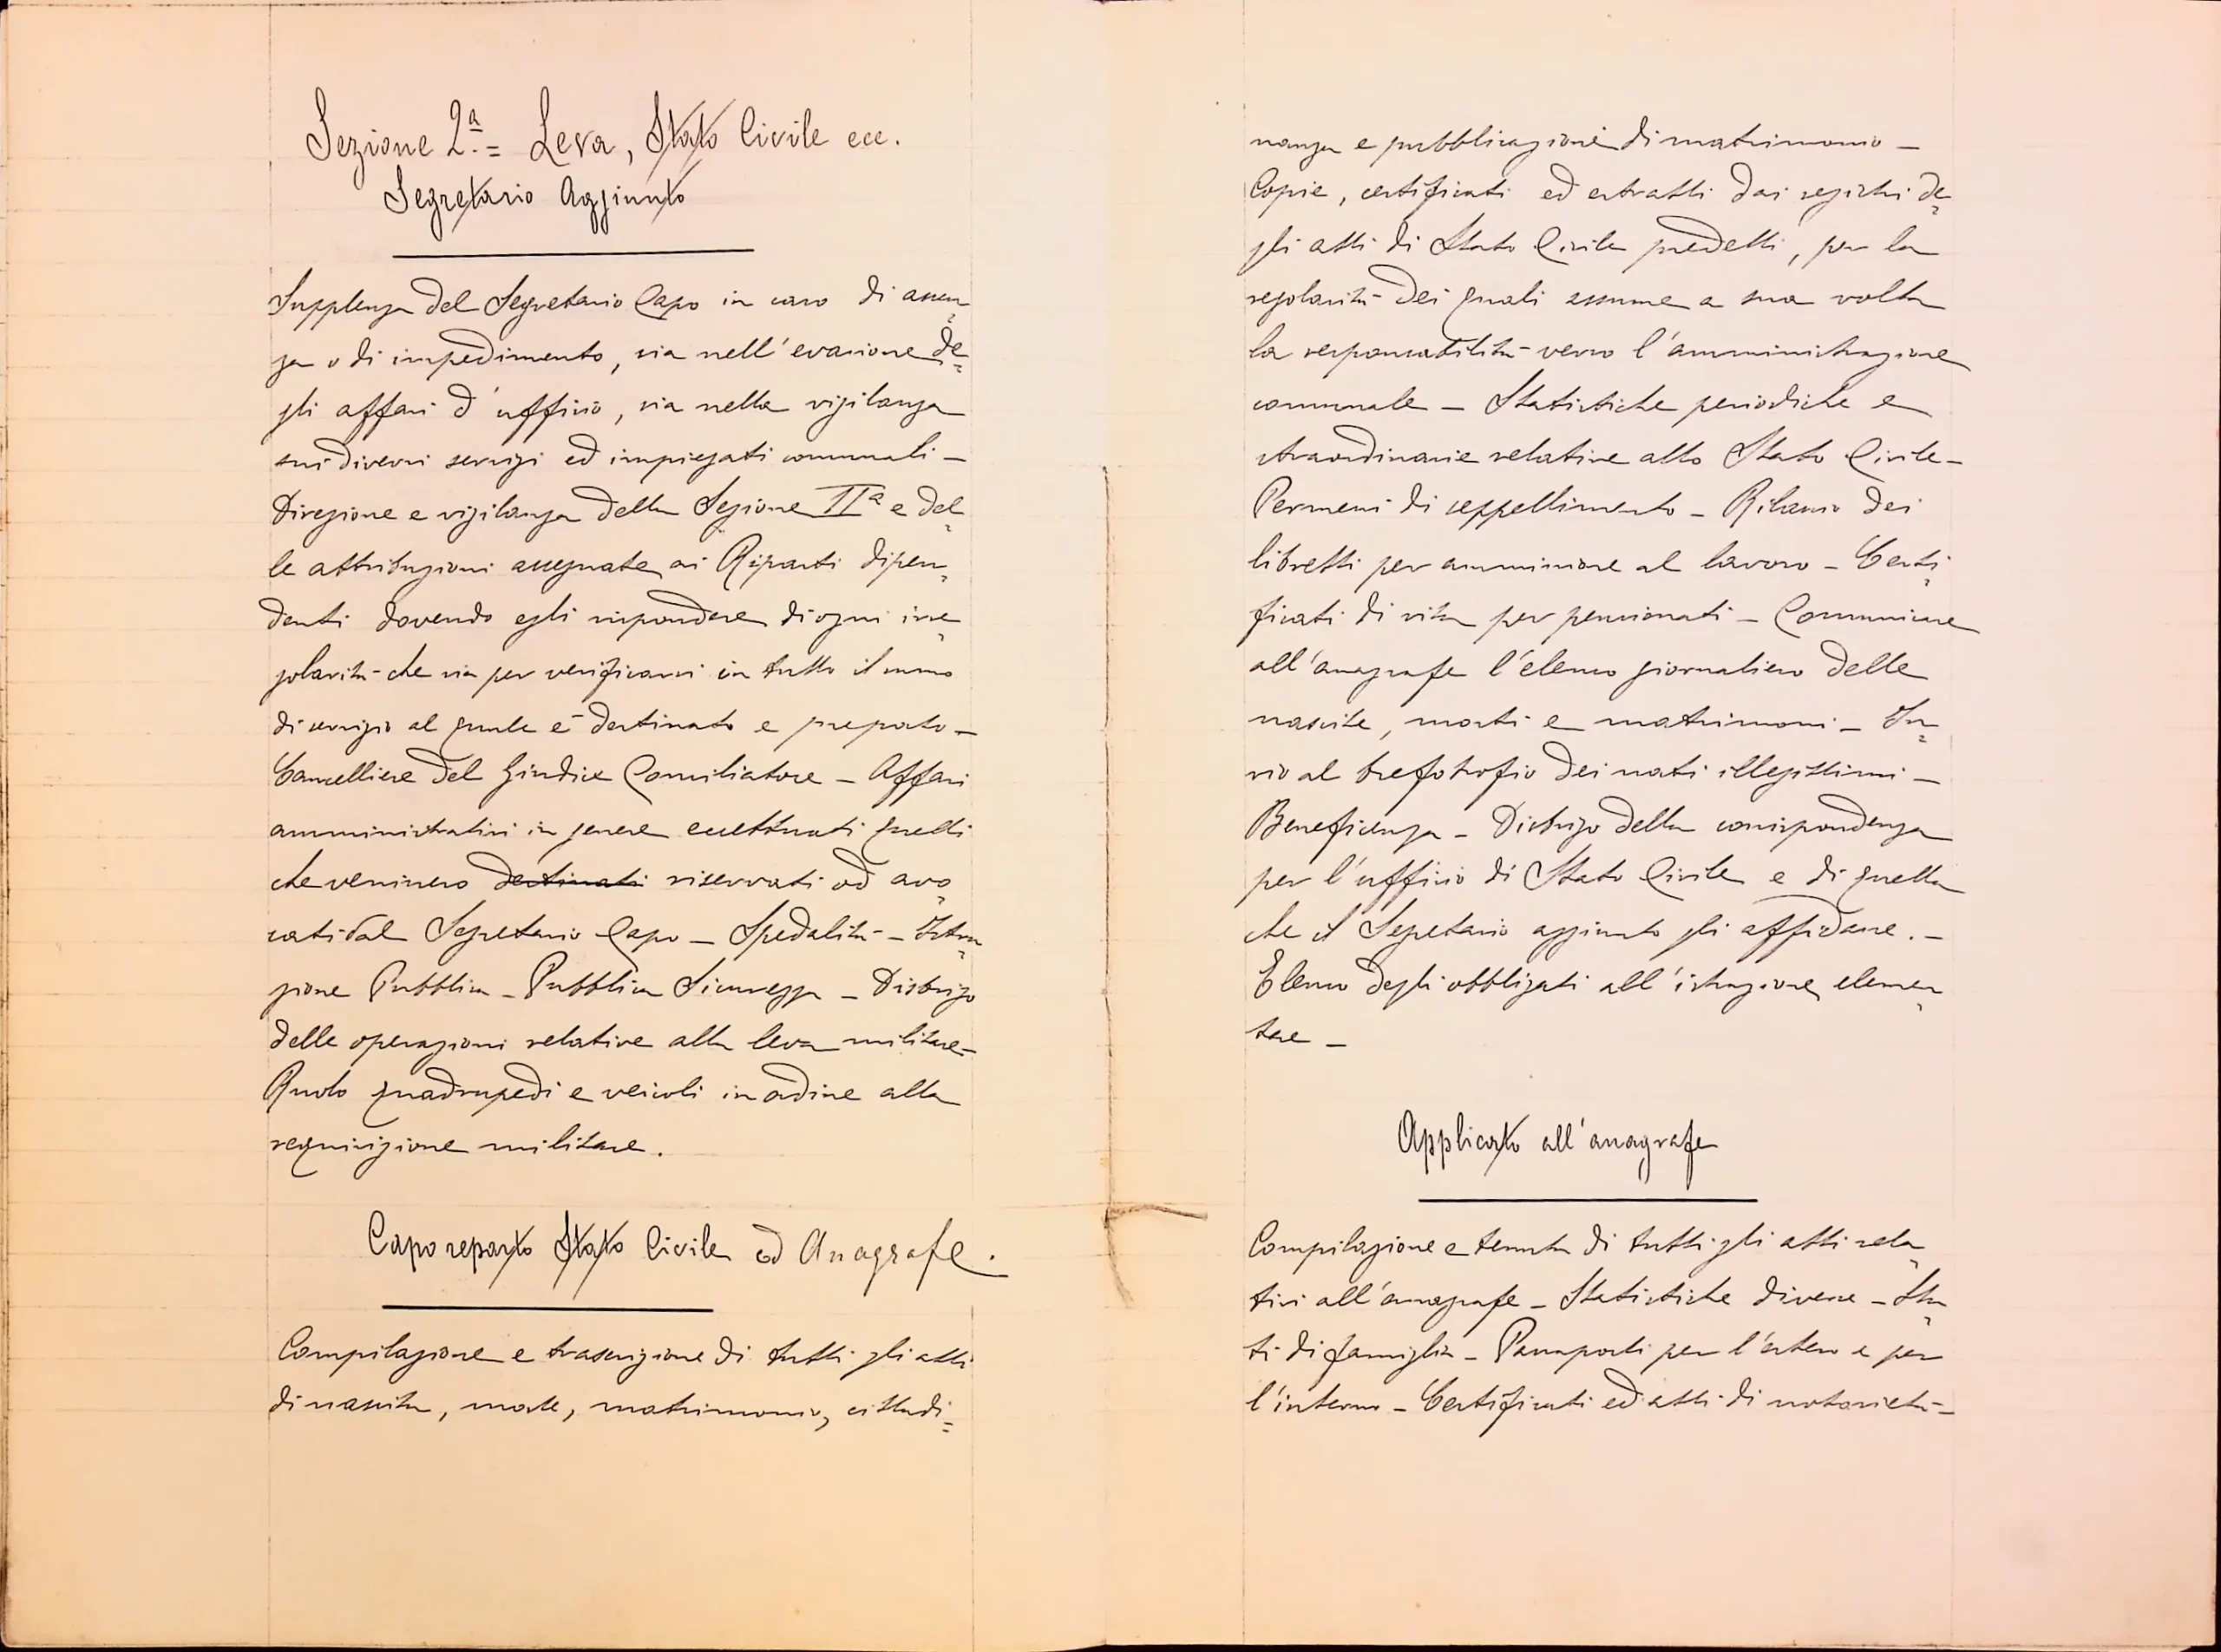 Sezione 2.ª = Leva, Stato Civile ecc.
Segretario Aggiunto
Supplenza del Segretario Capo in caso di assen=
za o di impedimento, sia nell'evasione de=
gli affari d'ufficio, sia nella vigilanza
sui diversi servizi ed impiegati comunali –
Direzione e vigilanza della Sezione IIª e del=
le attribuzioni assegnate ai Riparti dipen=
denti dovendo egli rispondere di ogni irre=
golarità che sia per verificarsi in tutto il ramo
di servizio al quale è destinato e preposto –
Cancelliere del Giudice Conciliatore – Affari
amministrativi in genere eccettuati quelli
che venissero destinati riservati od avo=
cati dal Segretario Capo – Spedalità – Istru=
zione Pubblica – Pubblica Sicurezza – Disbrigo
delle operazioni relative alla leva militare –
Ruolo quadrupedi e veicoli in ordine alla
requisizione militare.
Capo reparto Stato Civile ed Anagrafe.
Compilazione e trascrizione di tutti gli atti
di nascita, morte, matrimonio, cittadi=
nanza e pubblicazioni di matrimonio –
Copie, certificati ed estratti dai registri de=
gli atti di Stato Civile predetti, per la
regolarità dei quali assume a sua volta
la responsabilità verso l'amministrazione
comunale – Statistiche periodiche e
straordinarie relative allo Stato Civile –
Permessi di seppellimento – Rilascio dei
libretti per ammissione al lavoro – Certi=
ficati di vita per pensionati – Comunicare
all'anagrafe l'elenco giornaliero delle
nascite, morti e matrimoni – In=
vio al brefotrofio dei nati illegittimi –
Beneficenza – Disbrigo della corrispondenza
per l'ufficio di Stato Civile e di quella
che il Segretario aggiunto gli affidasse. –
Elenco degli obbligati all'istruzione elemen=
tare –
Applicato all'anagrafe
Compilazione e tenuta di tutti gli atti rela=
tivi all'anagrafe – Statistiche diverse – Sta=
ti di famiglia – Passaporti per l'estero e per
l'interno – Certificati ed atti di notorietà –